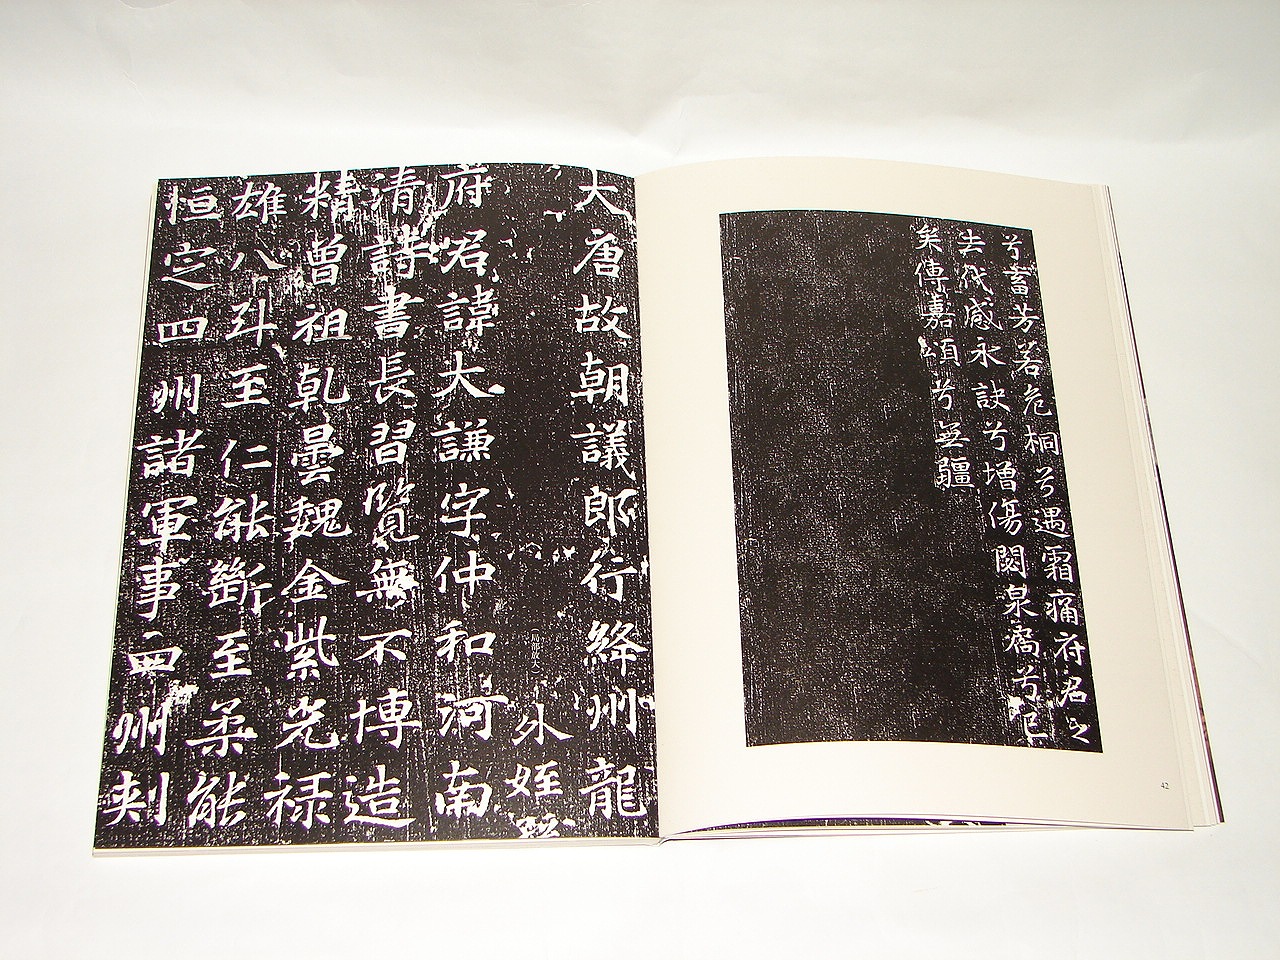 兮蓄芳若危桐兮遇霜痛府君之
去代感永訣兮增傷閟泉扃兮
矣傳嘉頌兮無疆
42
大唐故朝議郎行絳州龍
外姪
府君諱大謙字仲和河南
清詩書長習覽無不博造
精曾祖乹曇魏金紫光禄
雄八斗至仁能斷至柔能
恒定四州諸軍事州刾